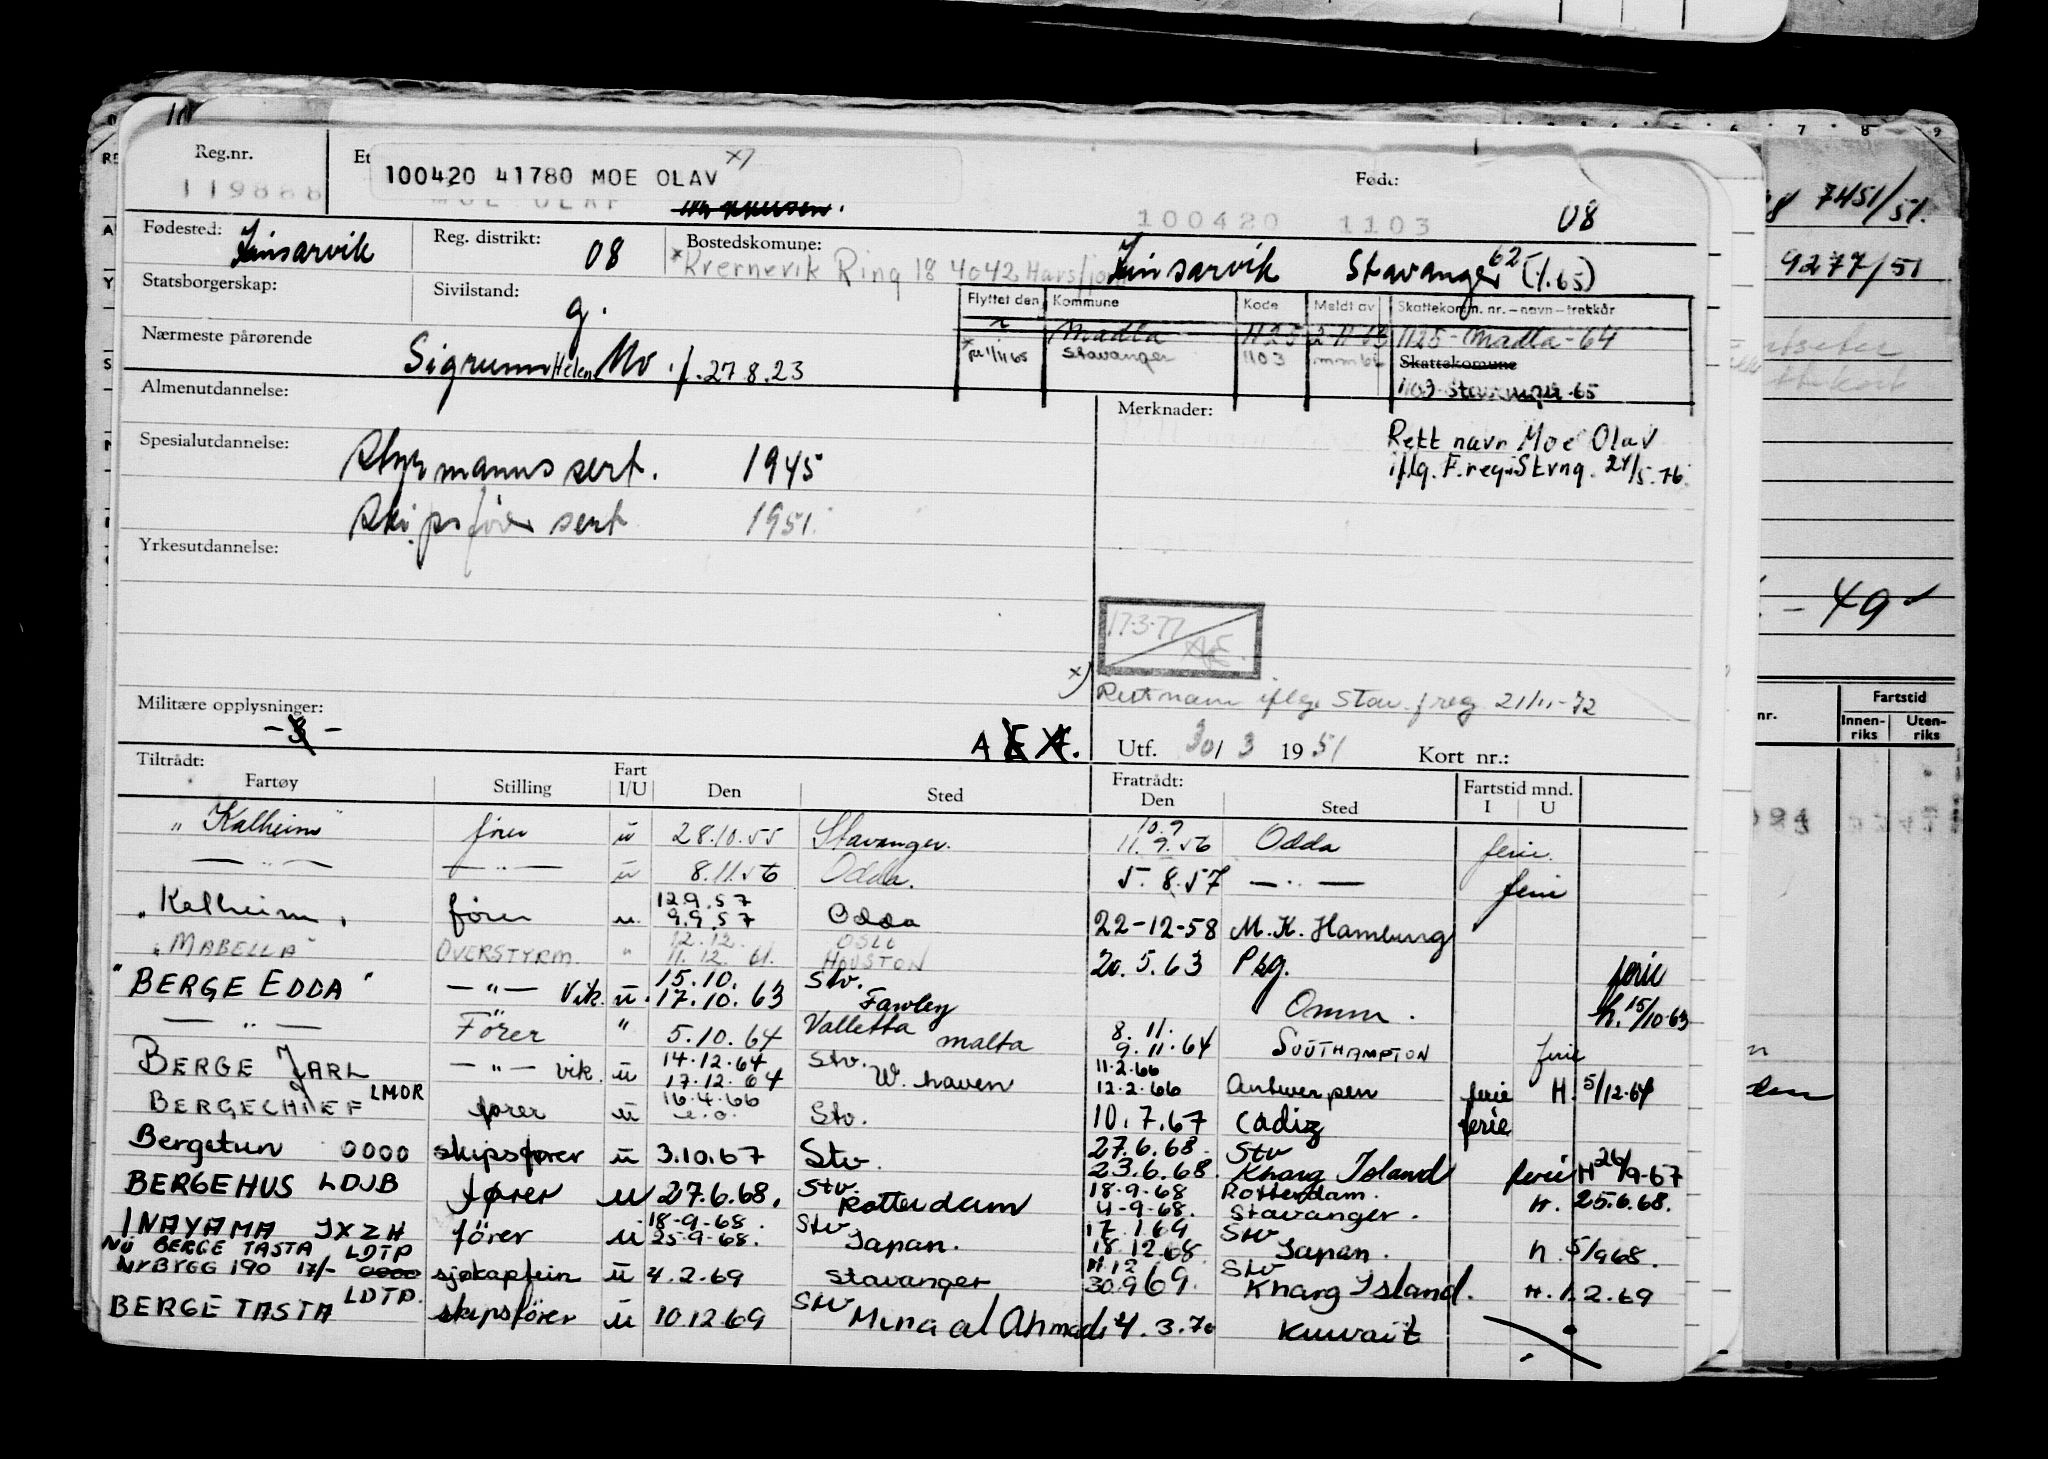 Reg.nr.
119888
100420 41780 MOE OLAV x)
Født:
100420 1103 08
Fødested: Kinsarvik
Reg. distrikt: 08
Bostedskomune: Kinsarvik Stavanger 62 (1.65)
* Kvernevik Ring 18 4042 Hafrsfjord
Statsborgerskap:
Sivilstand: g.
Flyttet den Kommune Kode Meldt av Skattekomm. nr. – navn – trekkår
Madla 1125 2 11 63 1125 - Madla - 64
1/11 65 Stavanger 1103 Skattekomune
1103 - Stavanger - 65
Nærmeste pårørende Sigrunn Helen Mo f. 27.8.23
Almenutdannelse:
Merknader:
Rett navn Moe Olav
iflg. F.reg. Stvng. 24/5.76.
Spesialutdannelse: Styrmanns sert. 1945
Skipsfører sert 1951.
Yrkesutdannelse:
17.3.77
x)
Rett navn iflge Stav. freg 21/11-72
Militære opplysninger:
Utf. 30/3 1951 Kort nr.:
Tiltrådt:
Fratrådt:
Fartøy Stilling Fart I/U Den Sted Den Sted Fartstid mnd. I U
"Kalheim" fører u 28.10.55 Stavanger. 10.9 11.9.56 Odda ferie.
— " — — " — u 8.11.56 Odda. 5.8.57 — " — ferie
"Kalheim" fører u. 12.9.57 9.9.57 Odda 22-12-58 M.K. Hamburg
"MABELLA" OVERSTYRM. " 12.12. 11.12.61. OSLO HOUSTON 20.5.63 Pkg. ferie
"BERGE EDDA" — " — Vik. u. 15.10. 17.10.63 Stv. Fawley Omm. h. 15/10-63
— " — Fører " 5.10.64 Valletta malta 8.11. 9.11.64 SOUTHAMPTON ferie
BERGE JARL — " — vik. u 14.12.64 17.12.64 Stv. W. haven 11.2.66 12.2.66 Antwerpen ferie H. 5/12.64
BERGECHIEF LMOR fører u 16.4.66 Stv. 10.7.67 Cadiz ferie
Bergetun 0000 skipsfører u 3.10.67 Stv. 27.6.68. 23.6.68. Stv Kharg Island ferie H 26/9-67
BERGEHUS LDJB fører u 27.6.68. Stv. Rotterdam 18-9-68 4-9-68. Rotterdam. Stavanger. H. 25.6.68.
INAYAMA JXZH fører u 18-9-68. 25-9-68. Stv Japan. 17.1.69 18.12.68 Stv Japan. h 5/968.
NÅ BERGE TASTA LDTP
NYBYGG 190 17/- 0000 sjøkaptein u 4.2.69 Stavanger 11.12 30.9.69. Stv Kharg Island. H. 1.2.69
BERGE TASTA LDTP. skipsfører u 10.12.69 Stv Mina al Ahmadi 4.3.70 Kuwait
7451/51.
9277/51
- 49
nr.
Fartstid
Innen-riks Uten-riks